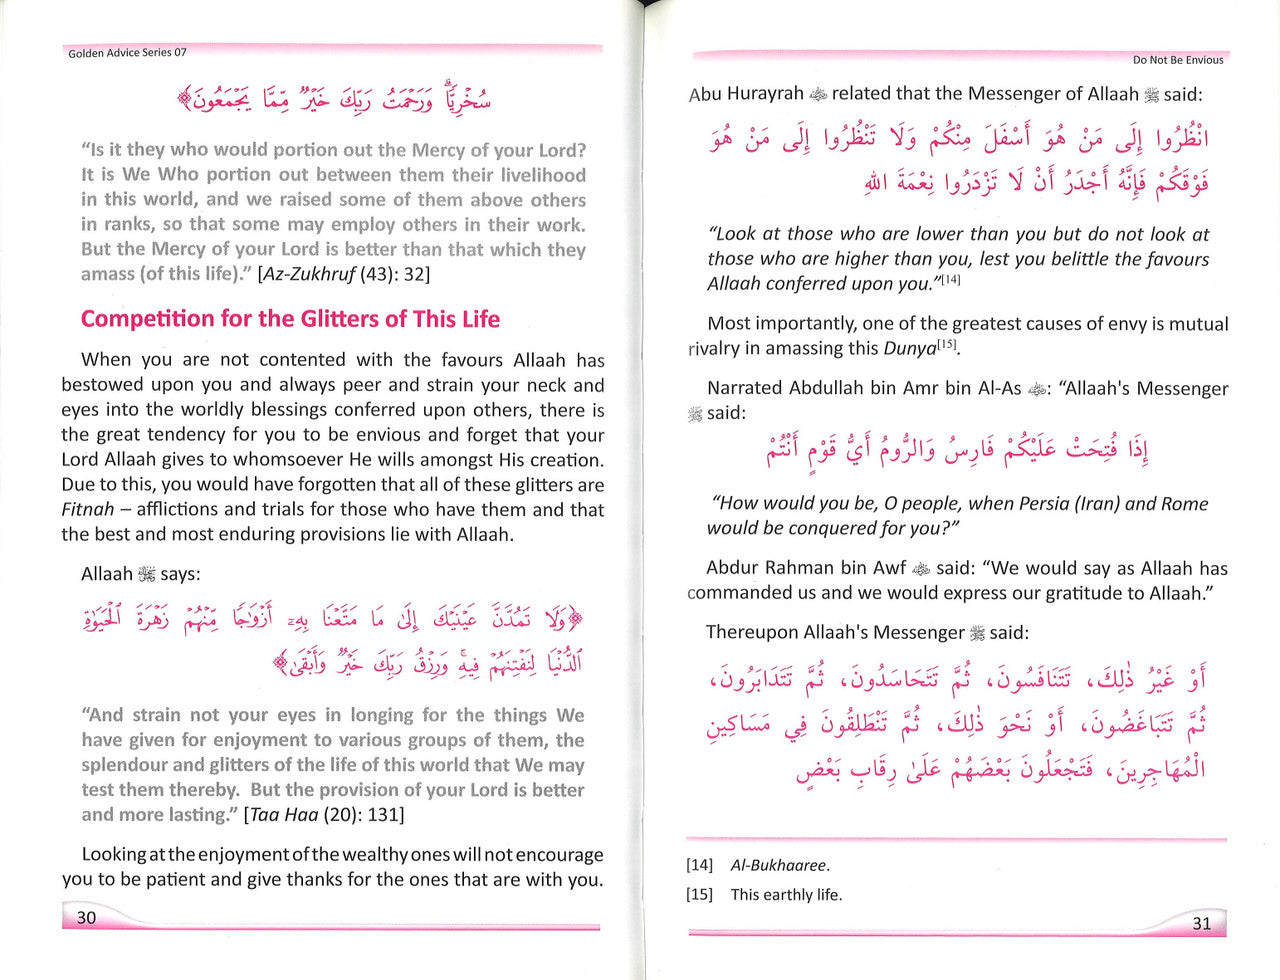 Golden Advice Series 07
سُخْرِيًّا ۗ وَرَحْمَتُ رَبِّكَ خَيْرٌ مِّمَّا يَجْمَعُونَ﴾
“Is it they who would portion out the Mercy of your Lord?
It is We Who portion out between them their livelihood
in this world, and we raised some of them above others
in ranks, so that some may employ others in their work.
But the Mercy of your Lord is better than that which they
amass (of this life).” [Az-Zukhruf (43): 32]
Competition for the Glitters of This Life
When you are not contented with the favours Allaah has
bestowed upon you and always peer and strain your neck and
eyes into the worldly blessings conferred upon others, there is
the great tendency for you to be envious and forget that your
Lord Allaah gives to whomsoever He wills amongst His creation.
Due to this, you would have forgotten that all of these glitters are
Fitnah – afflictions and trials for those who have them and that
the best and most enduring provisions lie with Allaah.
Allaah ﷻ says:
﴿وَلَا تَمُدَّنَّ عَيْنَيْكَ إِلَىٰ مَا مَتَّعْنَا بِهِۦٓ أَزْوَٰجًا مِّنْهُمْ زَهْرَةَ ٱلْحَيَوٰةِ
ٱلدُّنْيَا لِنَفْتِنَهُمْ فِيهِ ۚ وَرِزْقُ رَبِّكَ خَيْرٌ وَأَبْقَىٰ﴾
“And strain not your eyes in longing for the things We
have given for enjoyment to various groups of them, the
splendour and glitters of the life of this world that We may
test them thereby. But the provision of your Lord is better
and more lasting.” [Taa Haa (20): 131]
Looking at the enjoyment of the wealthy ones will not encourage
you to be patient and give thanks for the ones that are with you.
30
Do Not Be Envious
Abu Hurayrah related that the Messenger of Allaah ﷺ said:
انْظُرُوا إِلَى مَنْ هُوَ أَسْفَلَ مِنْكُمْ وَلَا تَنْظُرُوا إِلَى مَنْ هُوَ
فَوْقَكُمْ فَإِنَّهُ أَجْدَرُ أَنْ لَا تَزْدَرُوا نِعْمَةَ اللهِ
“Look at those who are lower than you but do not look at
those who are higher than you, lest you belittle the favours
Allaah conferred upon you.”[14]
Most importantly, one of the greatest causes of envy is mutual
rivalry in amassing this Dunya[15].
Narrated Abdullah bin Amr bin Al-As : “Allaah's Messenger
ﷺ said:
إِذَا فُتِحَتْ عَلَيْكُمْ فَارِسُ وَالرُّومُ أَيُّ قَوْمٍ أَنْتُمْ
“How would you be, O people, when Persia (Iran) and Rome
would be conquered for you?”
Abdur Rahman bin Awf said: “We would say as Allaah has
commanded us and we would express our gratitude to Allaah.”
Thereupon Allaah's Messenger ﷺ said:
أَوْ غَيْرُ ذٰلِكَ، تَتَنَافَسُونَ، ثُمَّ تَتَحَاسَدُونَ، ثُمَّ تَتَدَابَرُونَ،
ثُمَّ تَتَبَاغَضُونَ، أَوْ نَحْوَ ذٰلِكَ، ثُمَّ تَنْطَلِقُونَ فِي مَسَاكِينِ
الْمُهَاجِرِينَ، فَتَجْعَلُونَ بَعْضَهُمْ عَلَىٰ رِقَابِ بَعْضٍ
[14] Al-Bukhaaree.
[15] This earthly life.
31